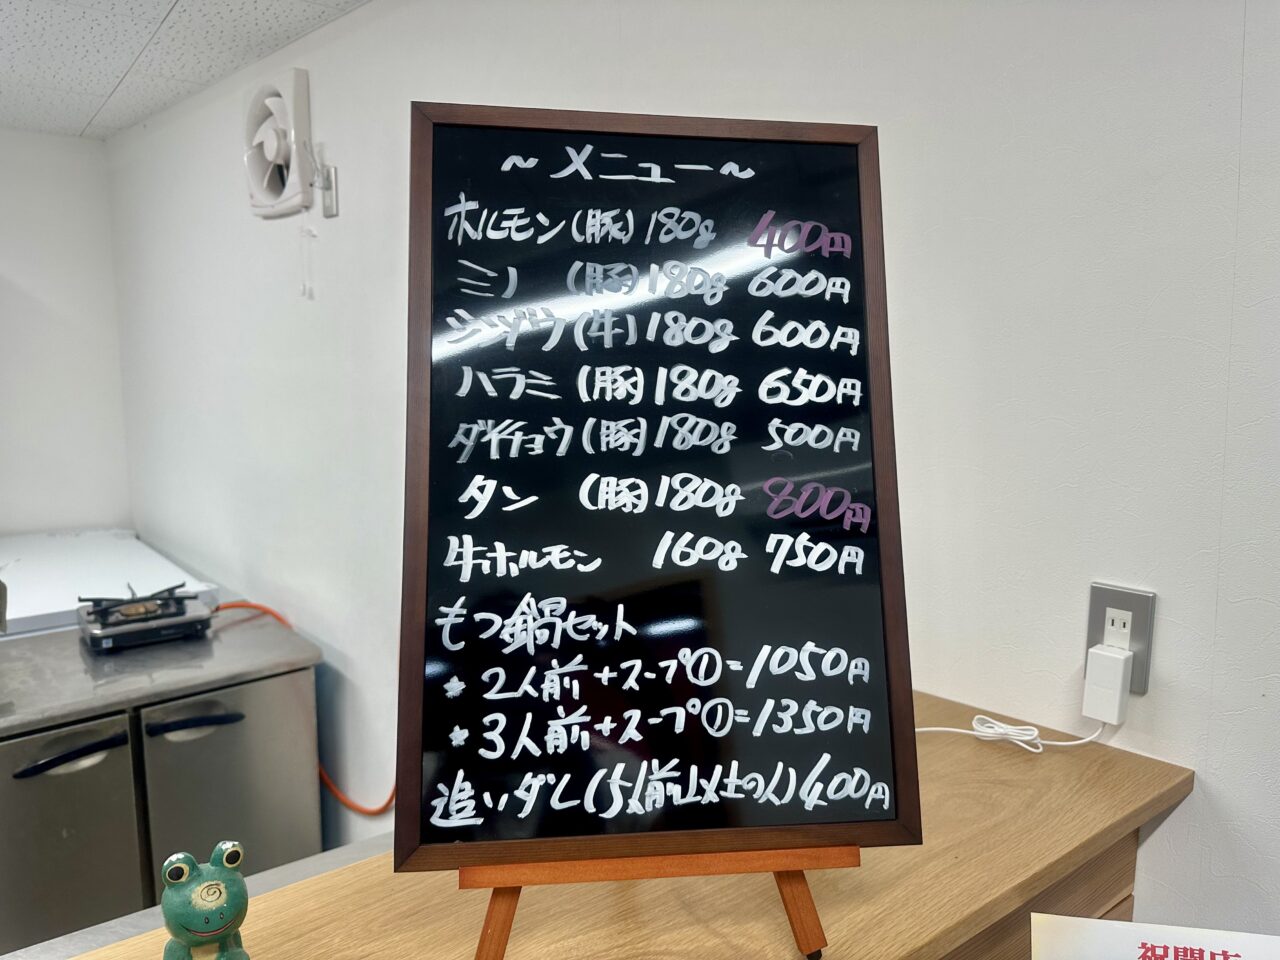 ～メニュー～
ホルモン(豚)180g 400円
ミノ (豚)180g 600円
ジゾウ(牛)180g 600円
ハラミ(豚)180g 650円
ダイチョウ(豚)180g 500円
タン (豚)180g 800円
牛ホルモン 160g 750円
もつ鍋セット
*2人前+スープ①=1050円
*3人前+スープ①=1350円
追いダレ(5人前以上の人)400円
祝開店